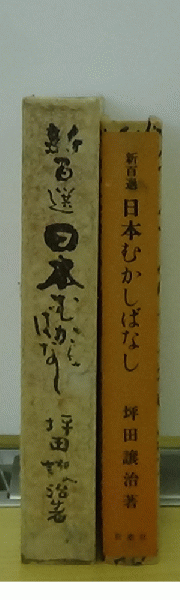 新百選
日本むかしばなし
坪田譲治著
新百選
日本むかしばなし
坪田譲治著